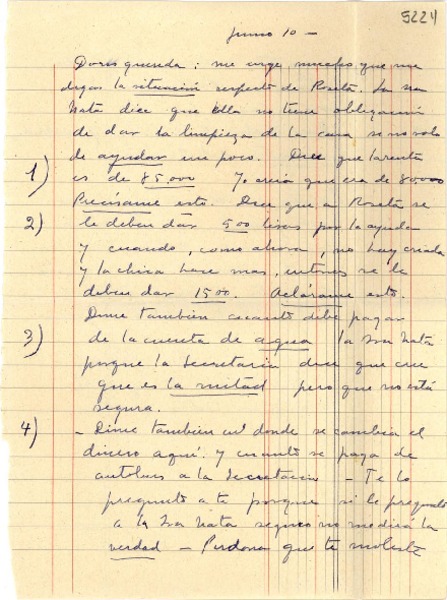 5224
junio 10 —
Doris querida: me urge mucho que me
digas la situación respecto de Rosita. La sra
Nata dice que ella no tiene obligación
de dar la limpieza de la casa sino solo
de ayudar un poco. Dice que la renta
1) es de 85.000 Yo creía que era de 80000
Precísame esto. Dice que a Rosita se
2) le deben dar 500 liras por la ayuda
y cuando, como ahora, no hay criada
y la chica hace mas, entonces se le
deben dar 1500. Aclárame esto.
Dime también cuanto debe pagar
3) de la cuenta de agua la Sra Nata
porque la Secretaria dice que cree
que es la mitad pero que no está
segura.
4) — Dime también en donde se cambia el
dinero aquí. y cuanto se paga de
autobus a la Secretaria — Te lo
pregunto a ti porque si le pregunto
a la Sra Nata seguro no me dirá la
verdad — Perdona que te moleste